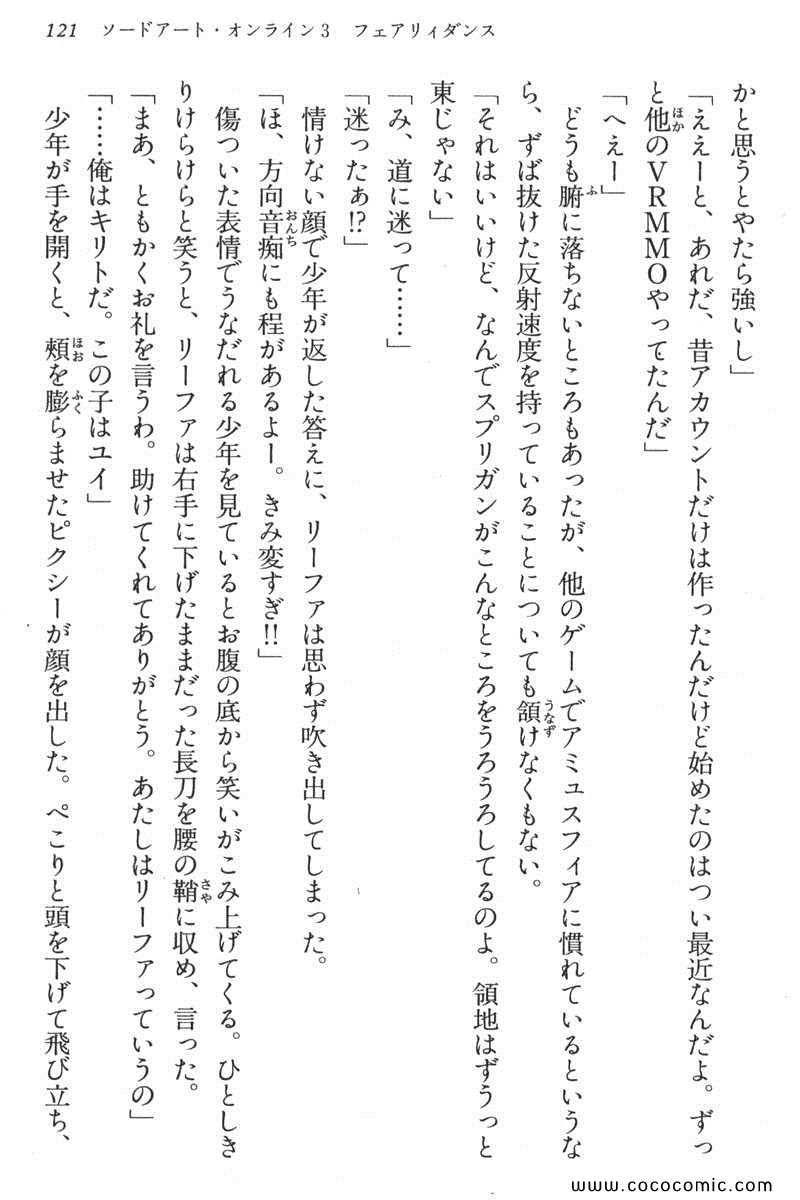 121 ソードアート・オンライン3 フェアリィダンス
かと思うとやたら強いし」
「ええーと、あれだ、昔アカウントだけは作ったんだけど始めたのはつい最近なんだよ。ずっ
と他のVRMMOやってたんだ」
ほか
「へえー」
どうも腑に落ちないところもあったが、他のゲームでアミュスフィアに慣れているというな
ふ
ら、ずば抜けた反射速度を持っていることについても頷けなくもない。
うなず
「それはいいけど、なんでスプリガンがこんなところをうろうろしてるのよ。領地はずうっと
東じゃない」
「み、道に迷って……」
「迷ったぁ!?」
情けない顔で少年が返した答えに、リーファは思わず吹き出してしまった。
「ほ、方向音痴にも程があるよー。きみ変すぎ!!」
おんち
傷ついた表情でうなだれる少年を見ているとお腹の底から笑いがこみ上げてくる。ひとしき
りけらけらと笑うと、リーファは右手に下げたままだった長刀を腰の鞘に収め、言った。
さや
「まあ、ともかくお礼を言うわ。助けてくれてありがとう。あたしはリーファっていうの」
「……俺はキリトだ。この子はユイ」
少年が手を開くと、頬を膨らませたピクシーが顔を出した。ぺこりと頭を下げて飛び立ち、
ほお
ふく
www.cococomic.com